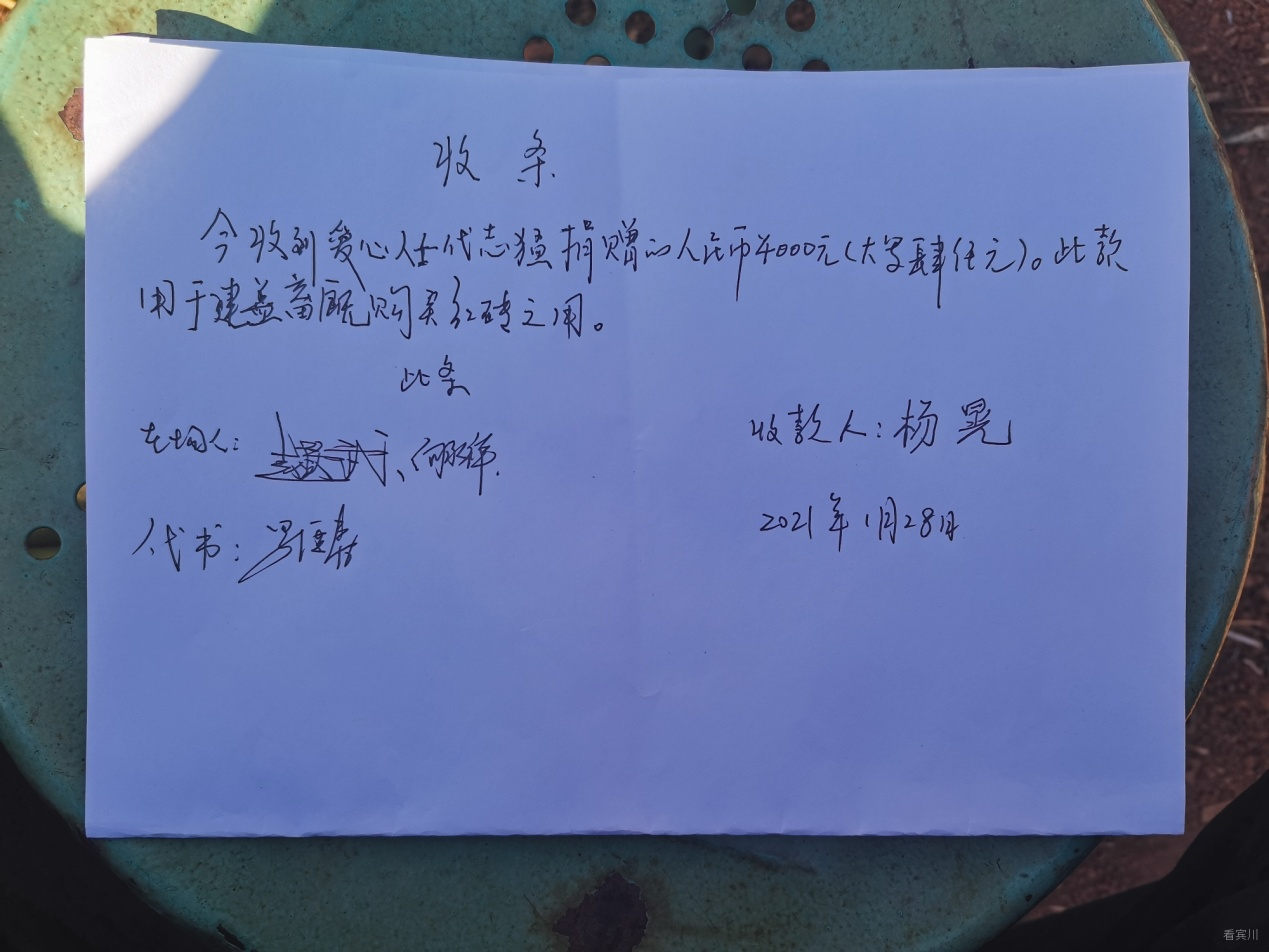 收条
今收到爱心人士代志猛捐赠的人民币¥4000元(大写肆仟元)。此款
用于建盖畜厩购买红砖之用。
此条
在场人:
收款人:杨晃
代书:
2021年1月28日
看宾川